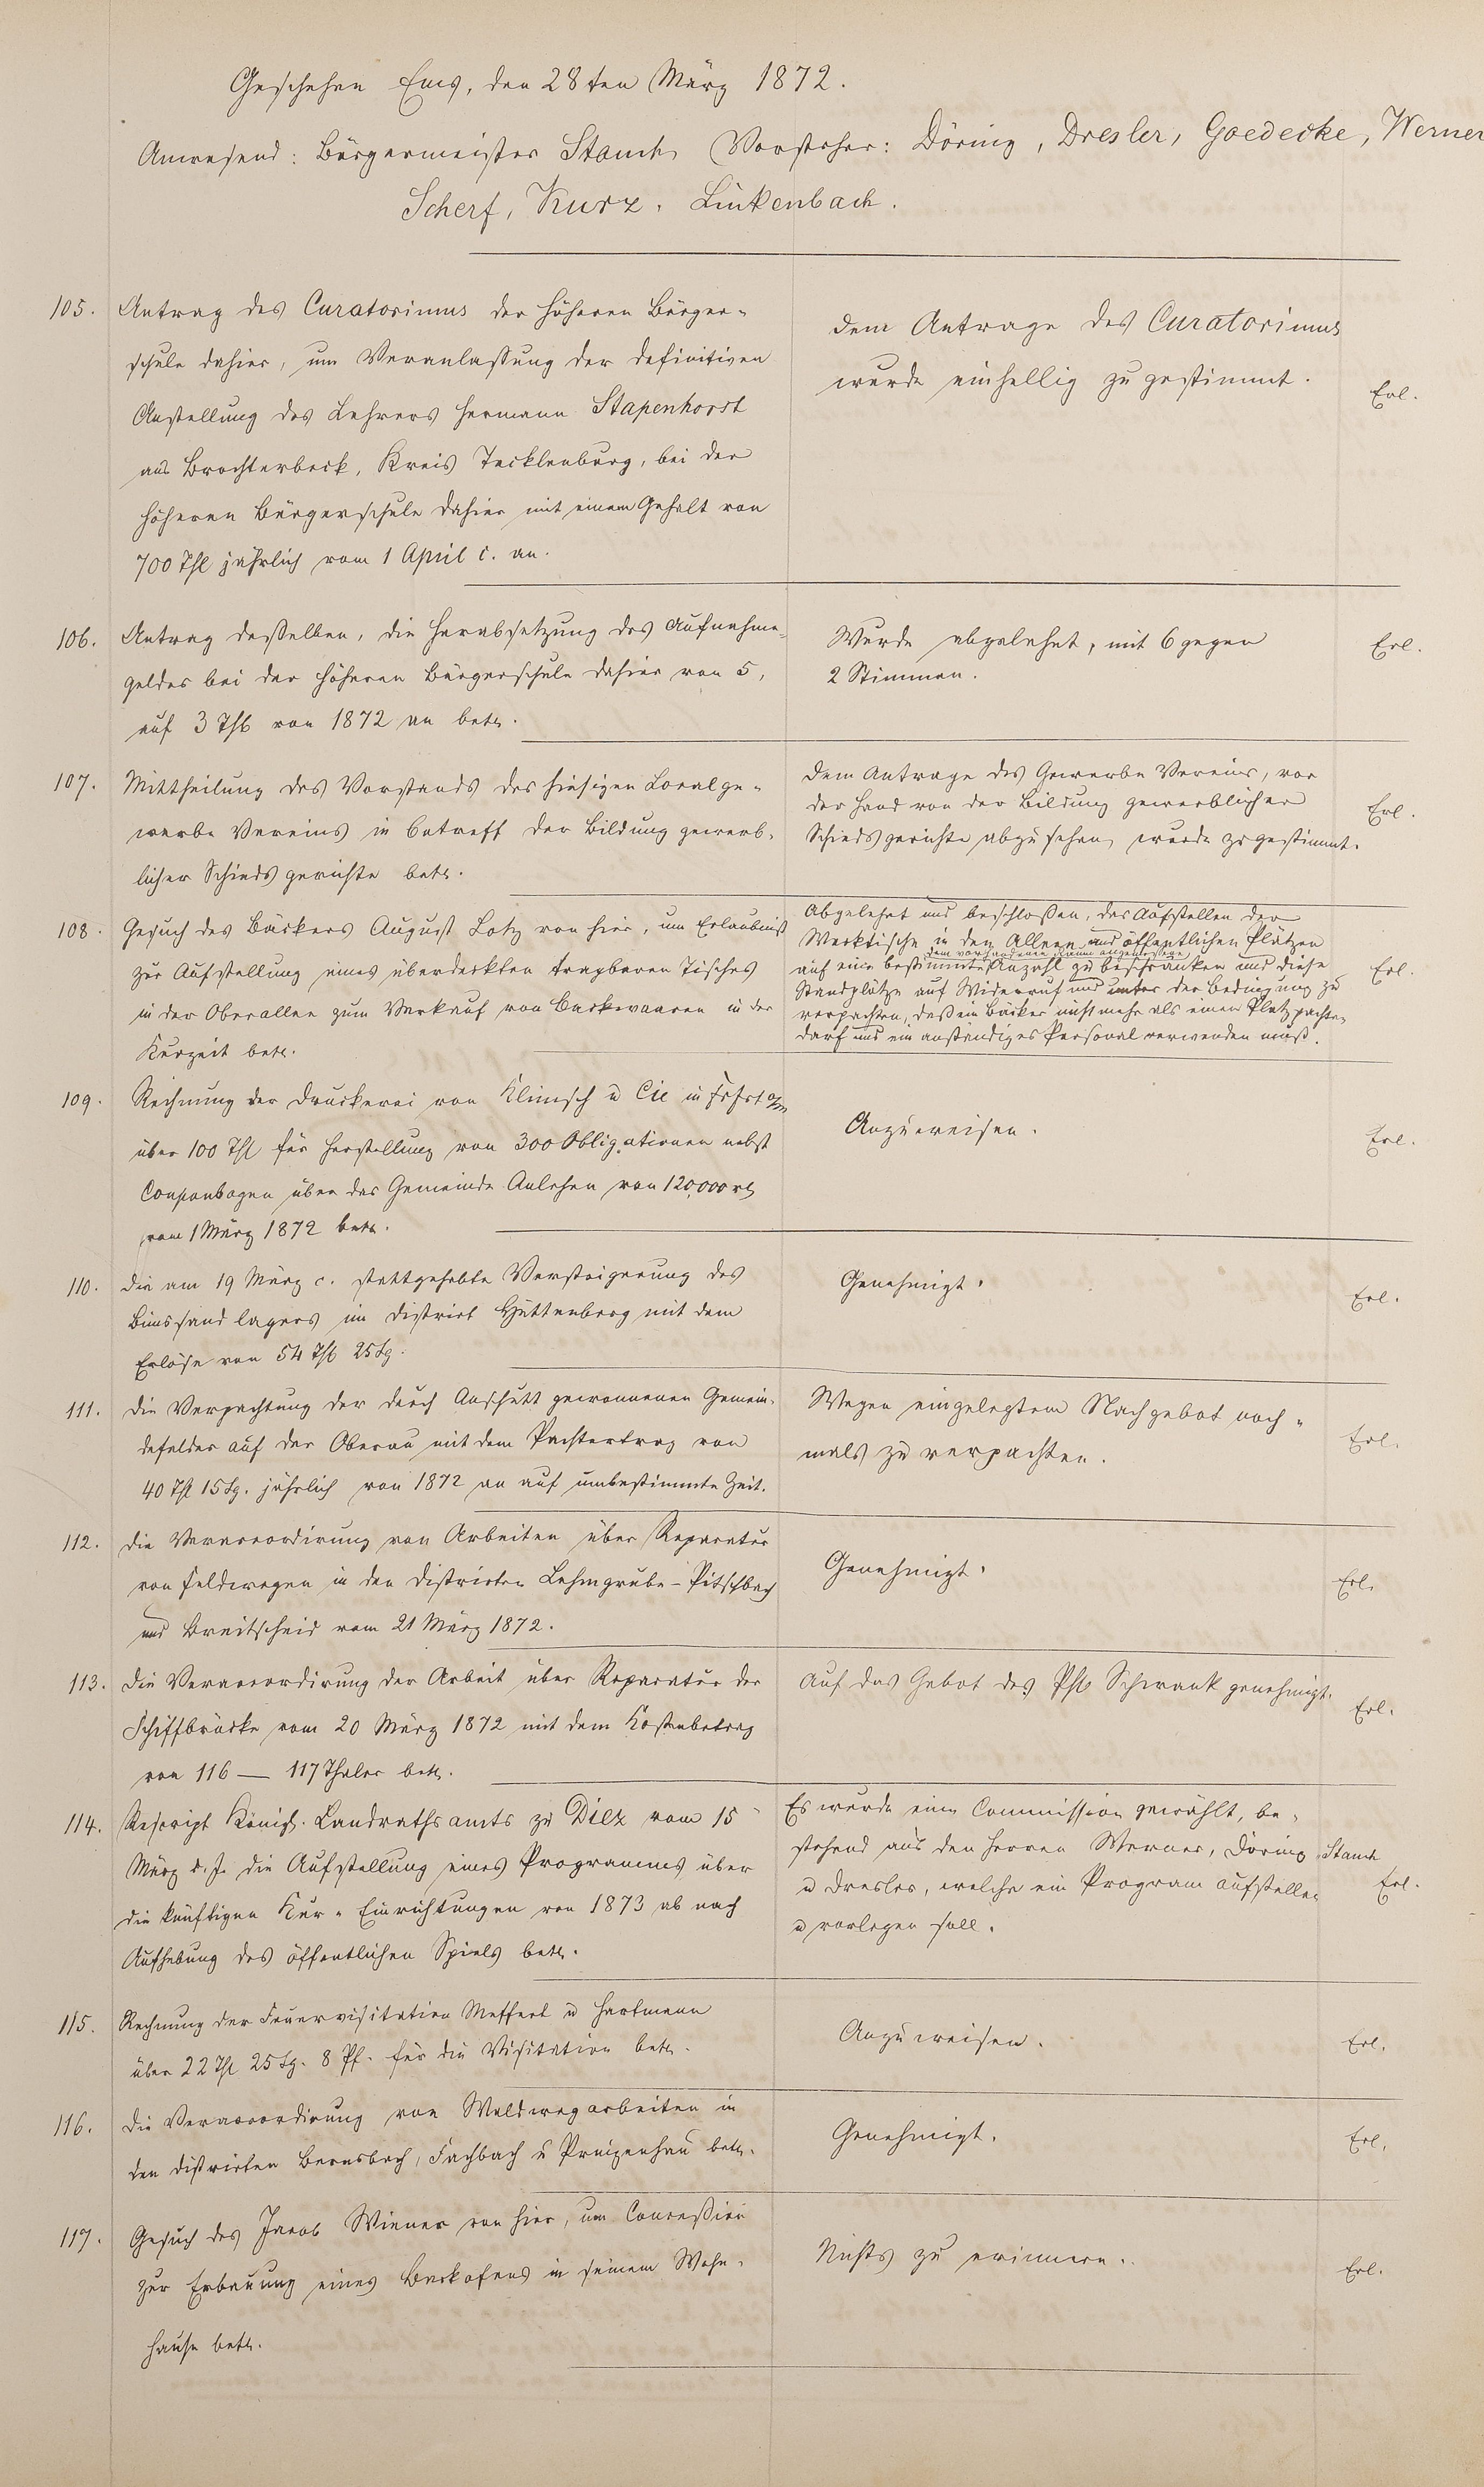 Geschehen Ems, den 28ten März 1872.
Anwesend: Bürgermeister Stauch, Vorsteher: Döring, Dresler, Goedecke, Werner
Scherf, Kurz, Linkenbach.
105.
Antrag des Curatoriums der höheren Bürger-
schule dahier, um Veranlaßung der definitiven
Anstellung des Lehrers Hermann Stapenhorst
aus Brochterbeck, Kreis Tecklenburg, bei der
höheren Bürgerschule dahier mit einem Gehalt von
700 Thl jährlich vom 1 April c. an.
Dem Antrage des Curatoriums
wurde einhellig zugestimmt.
Erl.
106.
Antrag desselben, die Herabsetzung des Aufnahme-
geldes bei der höheren Bürgerschule dahier von 5,
auf 3 Thl von 1872 an betr.
Wurde abgelehnt, mit 6 gegen
2 Stimmen.
Erl.
107.
Mittheilung des Vorstands des hiesigen Localge-
werbe Vereins in betreff der Bildung gewerb-
licher Schiedsgerichte betr.
Dem Antrage des Gewerbe Vereins, vor
der Hand von der Bildung gewerblicher
Schiedsgerichte abzusehen, wurde zugestimmt.
Erl.
108.
Gesuch des Bäckers August Lotz von hier, um Erlaubniß
zur Aufstellung eines überdeckten tragbaren Tisches
in der Oberallee zum Verkauf von Backwaaren in der
Kurzeit betr.
Abgelehnt und beschloßen, das Aufstellen der
Werktische in den Alleen und öffentlichen Plätzen
dem vorhandenen Raum angemessene
auf eine bestimmte Anzahl zu beschränken und diese
Standplätze auf Widerruf und unter der Bedingung zu
verpachten, daß ein Bäcker nicht mehr als einen Platz pachten
darf und ein anständiges Personal verwenden muß.
Erl.
109.
Rechnung der Druckerei von Klimsch u Cie in Frkft a/m
über 100 Thl für Herstellung von 300 Obligationen nebst
Couponbogen über das Gemeinde Anlehen von 120,000 rl
vom 1 März 1872 betr.
Anzuweisen.
Erl.
110.
Die am 19 März c. stattgehabte Versteigerung des
Bimssandlagers im District Hüttenberg mit dem
Erlöse von 54 Thl 25 Sg.
Genehmigt.
Erl.
111.
Die Verpachtung der durch Anschutt gewonnenen Gemein-
defelder auf der Oberau mit dem Pachtertrag von
40 Thl 15 Sg. jährlich von 1872 an auf unbestimmte Zeit.
Wegen eingelegtem Nachgebot noch-
mals zu verpachten.
Erl.
112.
Die Veraccordirung von Arbeiten über Reparatur
von Feldwegen in den Districten Lehmgrube - Pitschbach
und Breitscheid vom 21 März 1872.
Genehmigt.
Erl.
113.
Die Veraccordirung der Arbeit über Reparatur der
Schiffbrücke vom 20 März 1872 mit dem Kostenbetrag
von 116 — 117 Thaler betr.
Auf das Gebot des Schwank genehmigt.
Erl.
114.
Rescript Königl. Landrathsamts zu Diez vom 15
März d. J. die Aufstellung eines Programms über
die künftigen Kur-Einrichtungen von 1873 ab nach
Aufhebung des öffentlichen Spiels betr.
Es wurde eine Commission gewählt, be-
stehend aus den Herren Werner, Döring Stauch
u Dresler, welche ein Program aufstellen
u vorlegen soll.
Erl.
115.
Rechnung der Feuervisitation Meffert u Hartmann
über 22 Thl 25 Sg. 8 Pf. für die Visitation betr.
Anzuweisen.
Erl.
116.
Die Veraccordirung von Waldwegarbeiten in
den Districten Bernsbach, Fachbach u betr.
Genehmigt.
Erl.
117.
Gesuch des Jacob Wiener von hier, um Conceßion
zur Erbauung eines Backofens in seinem Wohn-
hause betr.
Nichts zu erinnern.
Erl.